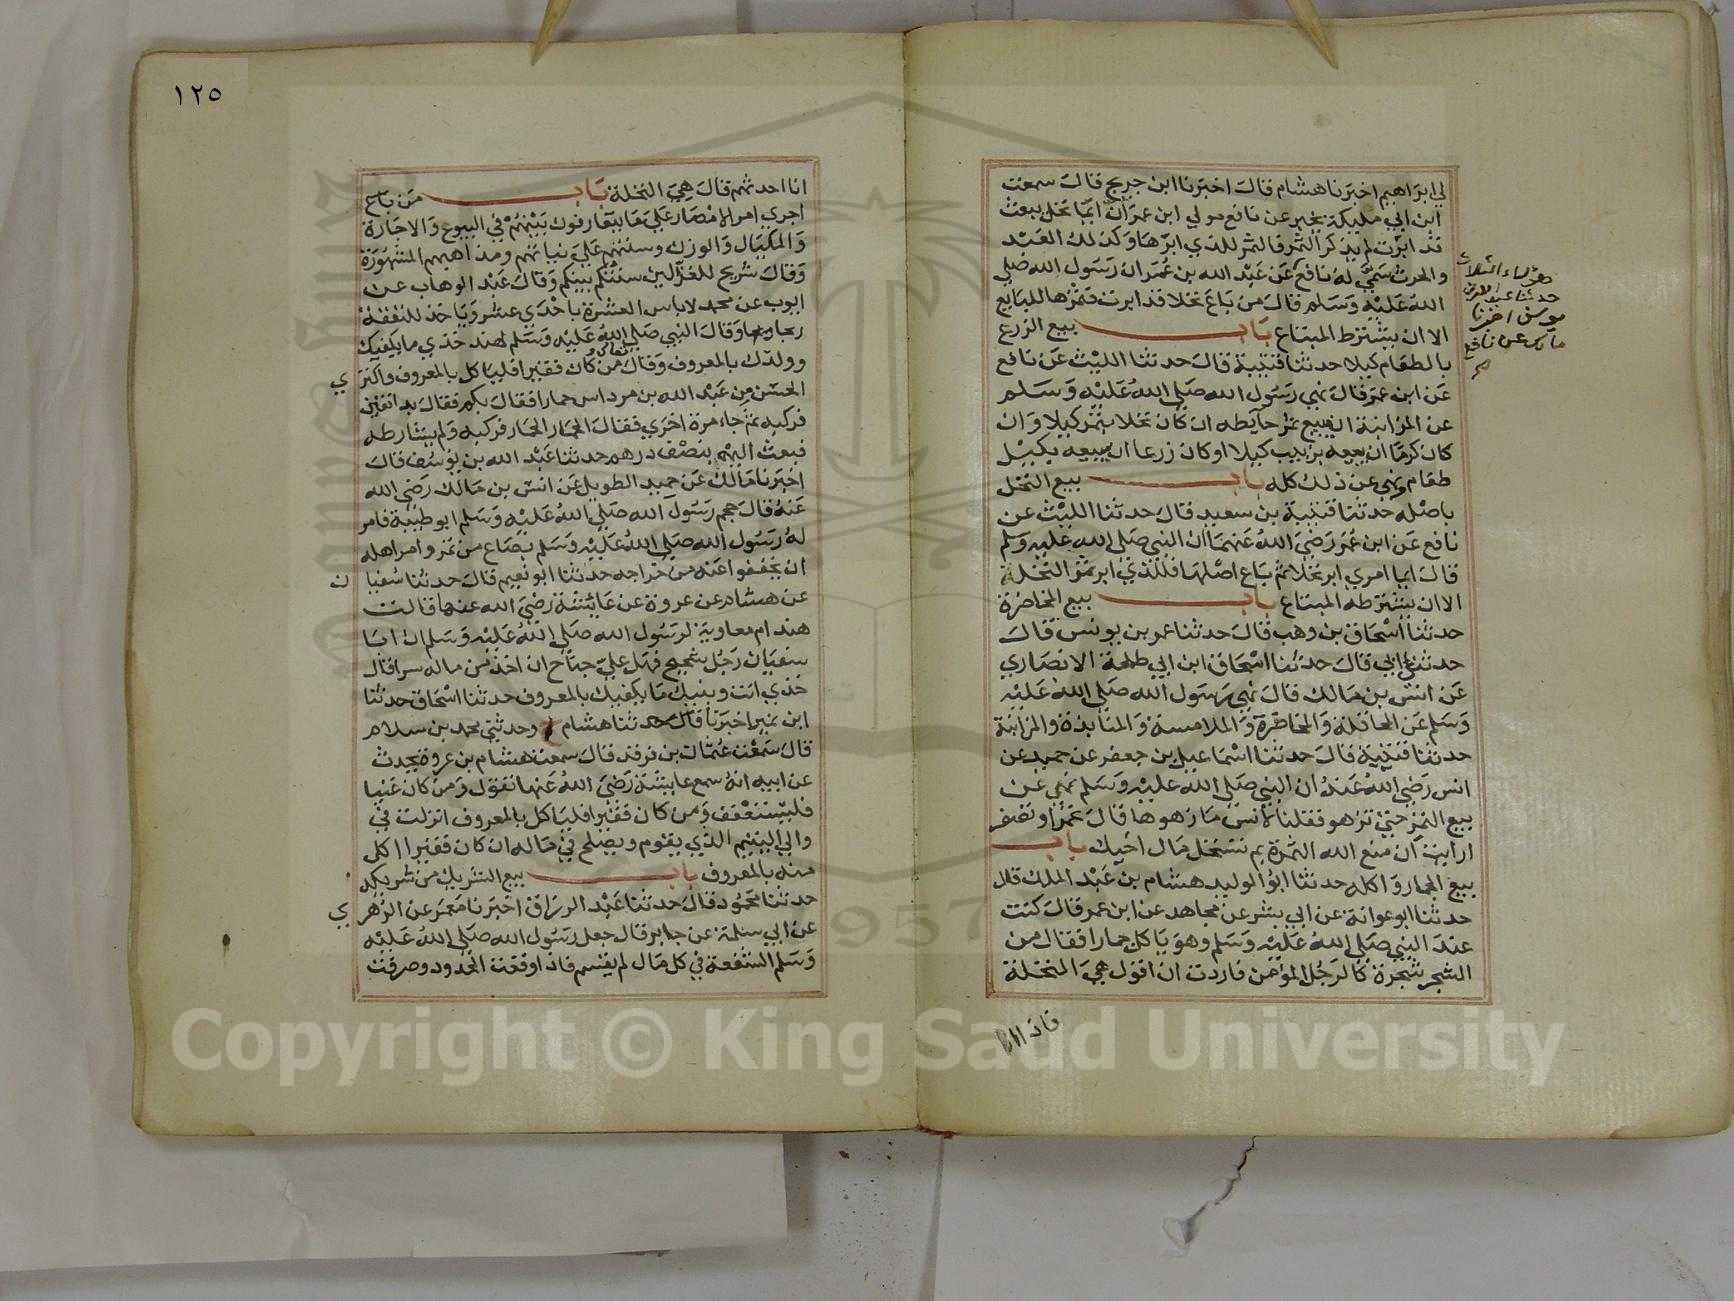 لي ابراهيم اخبرنا هشام قال اخبرنا ابن جريج قال سمعت
ابن ابي مليكة يخبر عن نافع مولي ابن عمر ان ايما نخل بيعت
قد ابرت لم يذكر الثمر فالثمر للذي ابرها وكذلك العبد
والحرث سمي له نافع عن عبد الله بن عمر ان رسول الله صلي
الله عليه وسلم قال من باع نخلا قد ابرت فثمرها للبايع
الا ان يشترط المبتاع باب بيع الزرع
بالطعام كيلا حدثنا قتيبة قال حدثنا الليث عن نافع
عن ابن عمر قال نهي رسول الله صلي الله عليه وسلم
عن المزابنة ان يبيع ثمر حايطه ان كان نخلا بثمر كيلا وان
كان كرما ان يبيعه بزبيب كيلا او كان زرعا ان يبيعه بكيل
طعام ونهي عن ذلك كله باب بيع النخل
باصله حدثنا قتيبة بن سعيد قال حدثنا الليث عن
نافع عن ابن عمر رضي الله عنهما ان النبي صلي الله عليه وسلم
قال ايما امري ابر نخلا ثم باع اصلها فللذي ابر ثمر النخلة
الا ان يشترطه المبتاع باب بيع المخاضرة
حدثنا اسحاق بن وهب قال حدثنا عمر بن يونس قال
حدثني ابي قال حدثنا اسحاق ابن ابي طلحة الانصاري
عن انس بن مالك قال نهي رسول الله صلي الله عليه
وسلم عن المحاقلة والمخاضرة والملامسة والمنابذة والمزابنة
حدثنا قتيبة قال حدثنا اسماعيل بن جعفر عن حميد عن
انس رضي الله عنه ان النبي صلي الله عليه وسلم نهي عن
بيع الثمر حتي تزهو فقلنا لانس ما زهوها قال تحمر او تصفر
ارايت ان منع الله الثمرة بم تستحل مال اخيك باب
بيع الجمار واكله حدثنا ابو الوليد هشام بن عبد الملك قال
حدثنا ابو عوانة عن ابي بشر عن مجاهد عن ابن عمر قال كنت
عند النبي صلي الله عليه وسلم وهو ياكل جمارا فقال من
الشجر شجرة كالرجل المومن فاردت ان اقول هي النخلة
فاذا انا
حدثنا عبد الله بن
يوسف اخبرنا
مالك عن نافع
١٢٥
انا احدثهم قال هي النخلة باب من باع
اجري امر الامصار علي ما يتعارفون بينهم في البيوع والاجارة
والمكيال والوزن وسننهم علي نياتهم ومذاهبهم المشهورة
وقال شريح للغزالين سنتكم بينكم وقال عبد الوهاب عن
ايوب عن محمد لا باس العشرة باحدي عشر وياخذ للنفقة
ربحا وقال النبي صلي الله عليه وسلم لهند خذي ما يكفيك
وولدك بالمعروف وقال تعالي من كان فقيرا فلياكل بالمعروف واكتري
الحسن من عبد الله بن مرداس حمارا فقال بكم فقال بدانقين
فركبه ثم جاء مرة اخري فقال الحمار الحمار فركبه ولم يشارطه
فبعث اليهم بنصف درهم حدثنا عبد الله بن يوسف قال
اخبرنا مالك عن حميد الطويل عن انس بن مالك رضي الله
عنه قال حجم رسول الله صلي الله عليه وسلم ابو طيبة فامر
له رسول الله صلي الله عليه وسلم بصاع من تمر وامر اهله
ان يخففوا عنه من خراجه حدثنا ابو نعيم قال حدثنا سفيان
عن هشام عن عروة عن عايشة رضي الله عنها قالت
هند ام معاوية لرسول الله صلي الله عليه وسلم ان ابا
سفيان رجل شحيح فهل علي جناح ان اخذ من ماله سرا قال
خذي انت وبنيك ما يكفيك بالمعروف حدثنا اسحاق حدثنا
ابن نمير اخبرنا قال حدثنا هشام وحدثني محمد بن سلام
قال سمعت عثمان بن فرقد قال سمعت هشام بن عروة يحدث
عن ابيه انه سمع عايشة رضي الله عنها تقول ومن كان غنيا
فليستعفف ومن كان فقيرا فلياكل بالمعروف انزلت في
والي اليتيم الذي يقوم ويصلح في ماله ان كان فقيرا اكل
منه بالمعروف باب بيع الشريك من شريكه
حدثنا محمود قال حدثنا عبد الرزاق اخبرنا معمر عن الزهري
عن ابي سلمة عن جابر قال جعل رسول الله صلي الله عليه
وسلم الشفعة في كل مال لم يقسم فاذا وقعت الحدود وصرفت
1957
Copyright © King Saud University